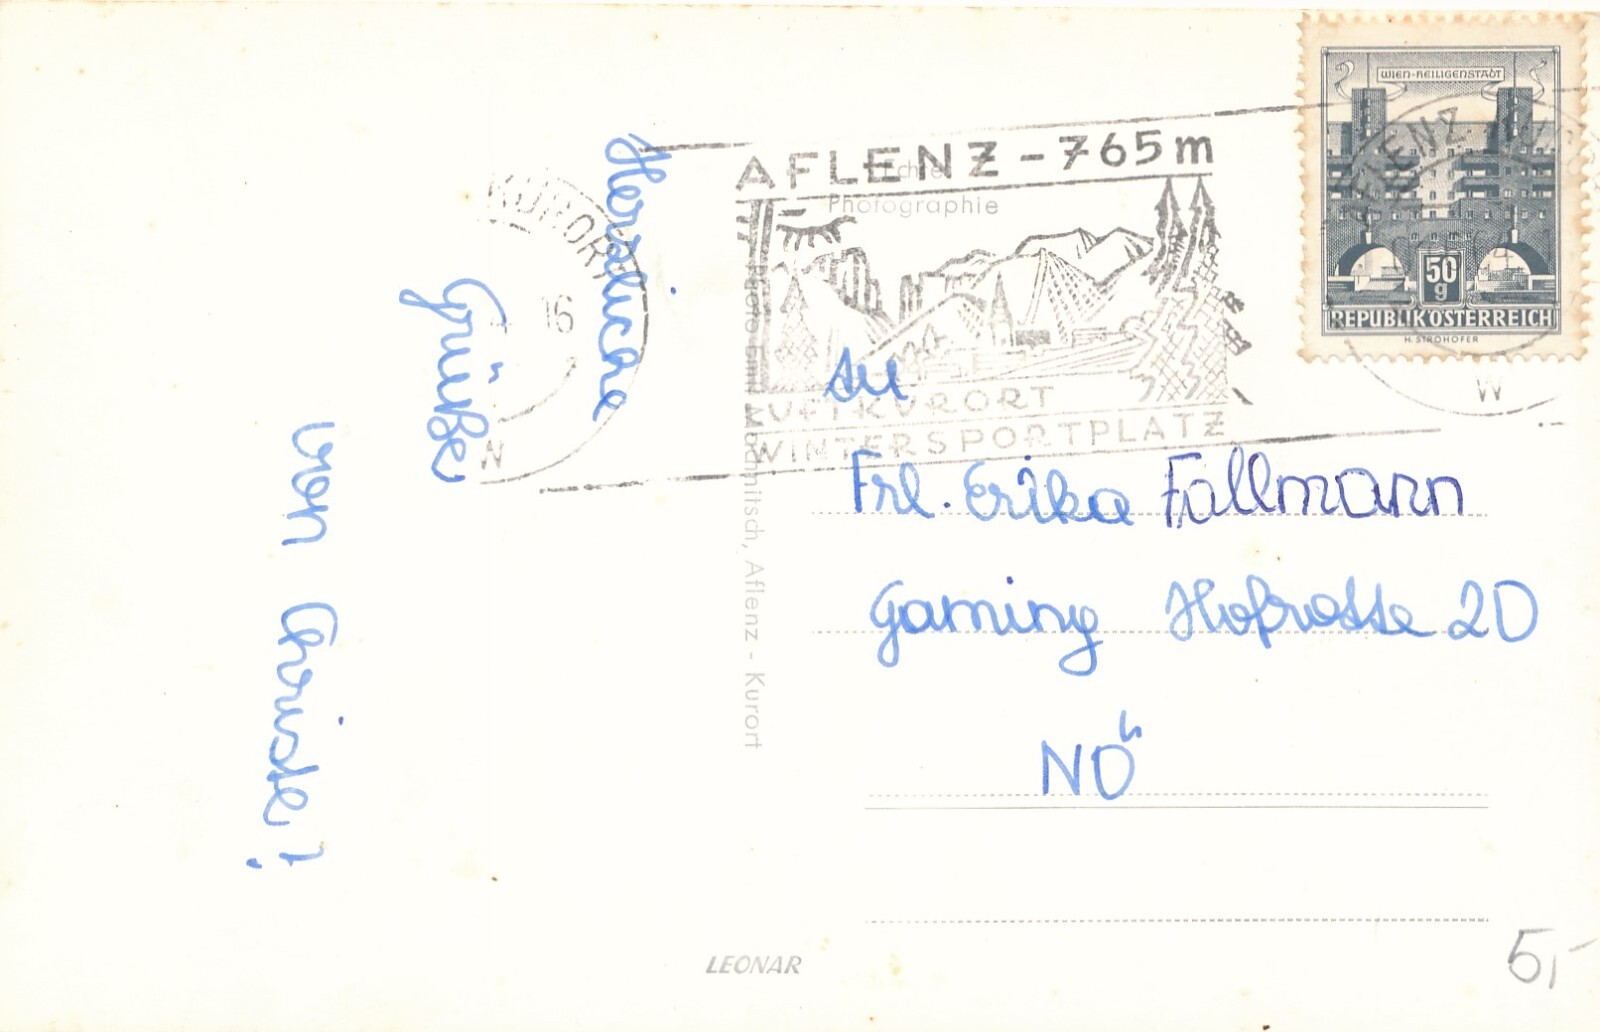 Herzliche
Grüße
von Christl!
KURORT
16
W
AFLENZ - 765 m
Echte
Photographie
LUFTKURORT
WINTERSPORTPLATZ
Aflenz - Kurort
WIEN-HEILIGENSTADT
50
g
REPUBLIK ÖSTERREICH
H. STROHOFER
AFLENZ
W
An
Frl. Erika Fallmann
Gaming Hofrotte 20
NÖ
LEONAR
5,-